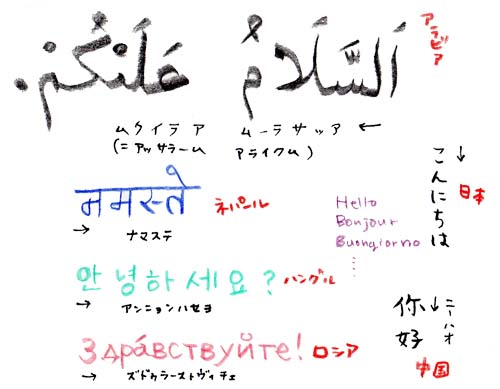 اَلسَّلَامُ عَلَيْكُمْ.
アラビア
ムクイラア ムーラサッア ←
(=アッサラーム アライクム)
↓
こんにちは
日本
नमस्ते ネパール
→ ナマステ
Hello
Bonjour
Buongiorno
안녕하세요? ハングル
→ アンニョンハセヨ
↓
你好
ニーハオ
中国
Здра́вствуйте! ロシア
→ ズドゥラーストヴィチェ